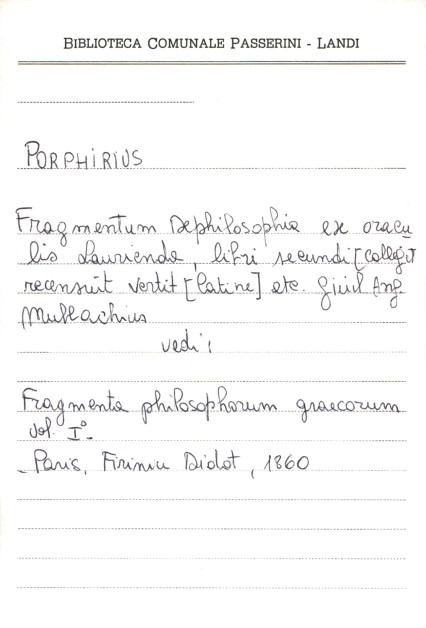 BIBLIOTECA COMUNALE PASSERINI - LANDI
PORPHIRIUS
Fragmentum Dephilosophia ex oracu
lis Laurienda, libri secundi [collegit
recensuit vertit [latine] etc. Guil Ang.
Mullachius
vedi:
Fragmenta philosophorum graecorum
vol. I°-
- Paris, Firimin Didot, 1860